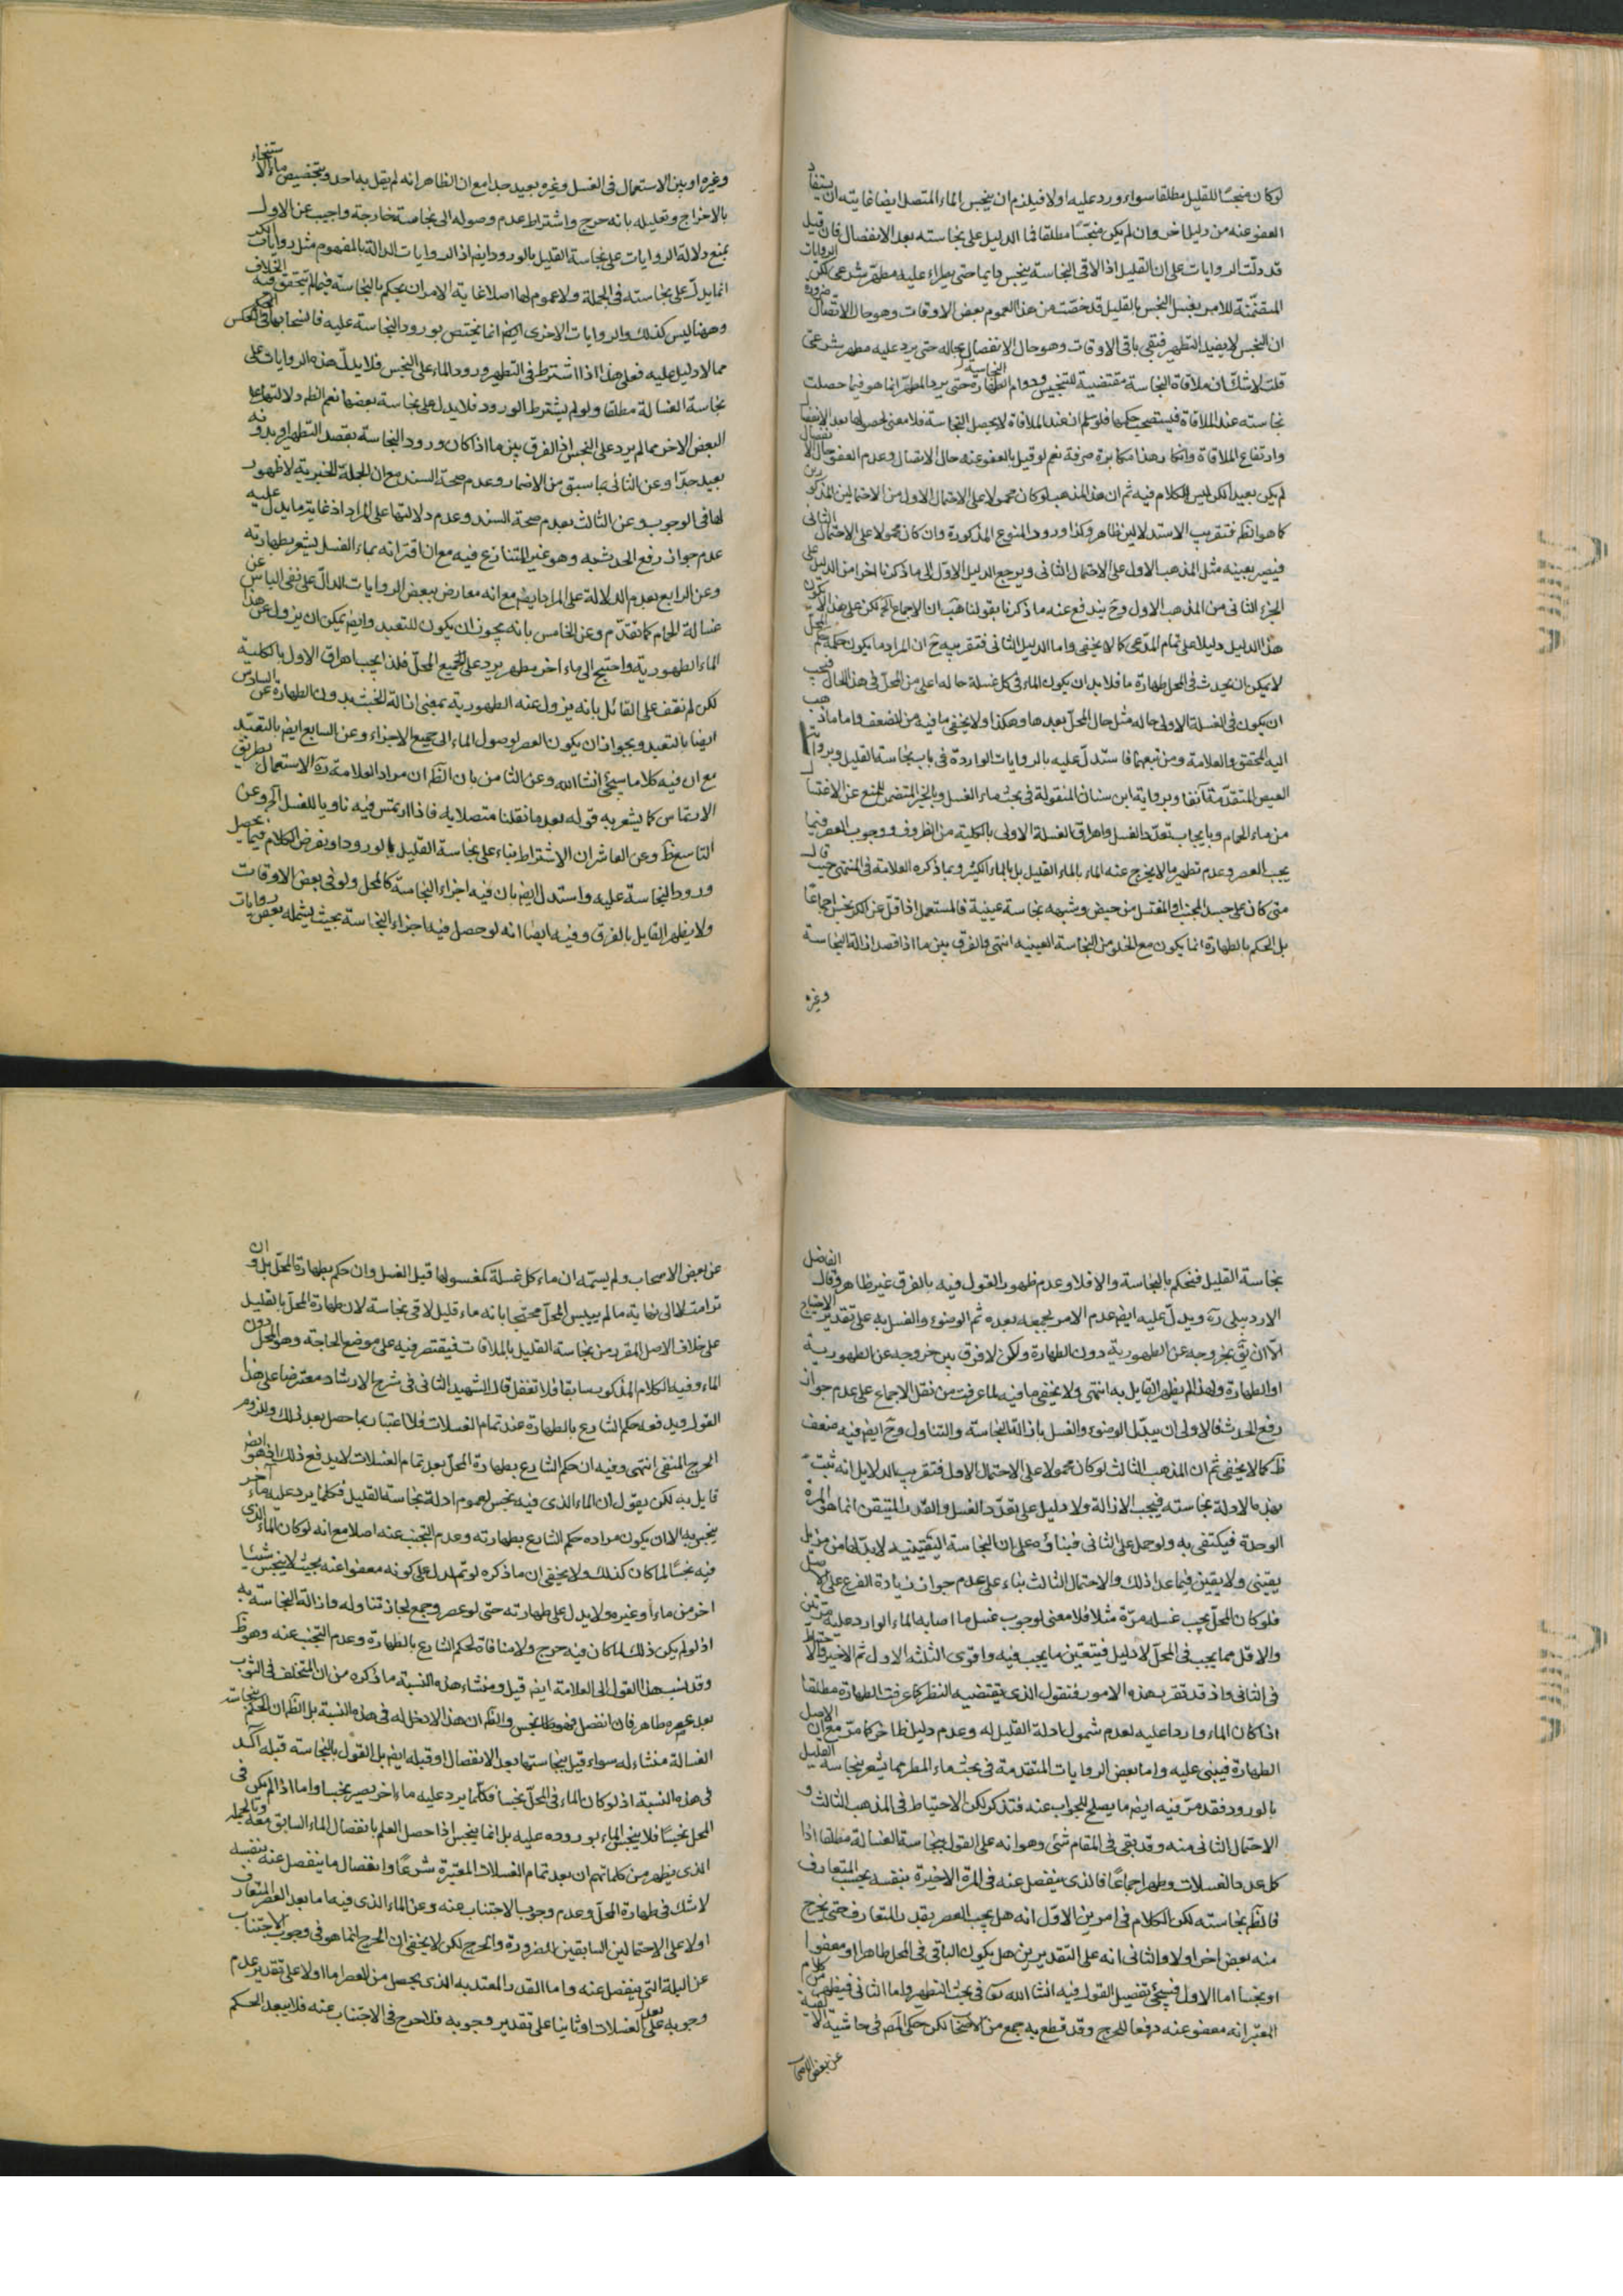 لو كان منجسًا للقليل مطلقا سواء ورد عليه او لا فيلزم ان ينجس الماء المتصل ايضا غايته ان يستفاد
العفو عنه من دليل اخر وان لم يكن منجسًا مطلقا فما الدليل على نجاسته بعد الانفصال فان قيل
قد دلّت الروايات على ان القليل اذا لاقى النجاسة ينجس دايما حتى يطراء عليه مطهر شرعى لكن الروايات
المتضمّنة للامر بغسل النجس بالقليل قد خصّت من هذا العموم بعض الاوقات وهو حال الاتصال ضرورة
ان النجس لا يفيد التطهير فبقى باقى الاوقات وهو حال الانفصال بحاله حتى يرد عليه مطهر شرعى
قلت لا شكّ ان ملاقاة النجاسة مقتضية للتنجيس ودوام النجاسة حتى يرد المطهر انما هو فيما حصلت
نجاسته عند الملاقاة فيستصحب حكمها فلو سلم ان عند الملاقاة لا يحصل النجاسة فلا معنى لحصولها بعد الانفصال
وارتفاع الملاقاة وانكار هذا مكابرة صرفة نعم لو قيل بالعفو عنه حال الاتصال وعدم العفو حال الانفصال
لم يكن بعيدا لكن ليس الكلام فيه ثم ان هذا المذهب لو كان محمولا على الاحتمال الاول من الاحتمالين المذكورين
كما هو الظ فتقريب الاستدلالين ظاهر وكذا ورود المنوع المذكورة وان كان محمولا على الاحتمال الثانى
فيصير بعينه مثل المذهب الاول على الاحتمال الثانى ويرجع الدليل الاوّل الى ما ذكرنا اخرا من الدليل على
الجزء الثانى من المذهب الاول وح يندفع عنه ما ذكرنا بقولنا هب ان الاجماع الخ لكن على هذا لا يكون
هذا الدليل دليلا على تمام المدّعى كما لا يخفى واما الدليل الثانى فتقريبه ح ان المراد ما يكون حكمه حكم المحل
لا يمكن ان يحدث فى المحل طهارة ما فلا بد ان يكون الماء فى كل غسلة حاله اعلى من المحلّ فى هذا الحال فيجب
ان يكون فى الغسلة الاولى حاله مثل حال المحلّ بعدها وهكذا ولا يخفى ما فيه من الضعف واما ما ذهب
اليه المحقق والعلامة ومن تبعهما فاستدلّ عليه بالروايات الواردة فى باب نجاسة القليل وبرواية
العيص المتقدّمة آنفا وبرواية ابن سنان المنقولة فى بحث ماء الغسل وبالخبر المتضمن للمنع عن الاغتسال
من ماء الحمام وبايجاب تعدّد الغسل واهراق الغسلة الاولى بالكلية من الظروف ووجوب العصر فيما
يجب العصر وعدم تطهير ما لا يخرج عنه الماء بالماء القليل بل بالماء الكثير وبما ذكره العلامة فى المنتهى حيث قال
متى كان على جسد المجنب او المغتسل من حيض وشبهه نجاسة عينية فالمستعمل اذا قلّ عن الكر نجس اجماعًا
بل الحكم بالطهارة انما يكون مع الخلو من النجاسة العينيه انتهى والفرق بين ما اذا قصد ازالة النجاسة
وغيره
وغيره او بين الاستعمال فى الغسل وغيره بعيد جدا مع ان الظاهر انه لم يقل به احد وبتخصيص ماء الاستنجاء
بالاخراج وتعليله بانه حرج واشتراط عدم وصوله الى نجاسة خارجة واجيب عن الاول
بمنع دلالة الروايات على نجاسة القليل بالورود ايضا اذ الروايات الدالة بالمفهوم مثل روايات الكر
انما يدلّ على نجاسته فى الجملة ولا عموم لها اصلا غاية الامر ان يحكم بالنجاسة فيما لم يتحقق فيه الخلاف
وههنا ليس كذلك والروايات الاخرى ايضا انما يختص بورود النجاسة عليه فانسحابها فى العكس
مما لا دليل عليه فعلى هذا اذا اشترط فى التطهير ورود الماء على النجس فلا يدلّ هذه الروايات على
نجاسة الغسالة مطلقا ولو لم يشترط الورود فلا يدل على نجاسة بعضها نعم الظ دلالتها على
البعض الاخر مما لم يرد على النجس اذ الفرق بين ما اذا كان ورود النجاسة بقصد التطهير او بدونه
بعيد جدّا وعن الثانى بما سبق من الاضمار وعدم صحة السند مع ان الجملة الخبرية لا ظهور
لها فى الوجوب وعن الثالث بعدم صحة السند وعدم دلالتها على المراد اذ غاية ما يدل عليه
عدم جواز رفع الحدث به وهو غير المتنازع فيه مع ان اقترانه بماء الغسل يشعر بطهارته
وعن الرابع بعدم الدلالة على المراد ايضا مع انه معارض ببعض الروايات الدالّ على نفى الباس عن
غسالة الحمام كما تقدّم وعن الخامس بانه يجوز ان يكون للتعبد وايضا يمكن ان يزول عن هذا
الماء الطهورية واحتيج الى ماء اخر مطهر يرد على جميع المحلّ فلذا يجب اهراق الاول بالكلية
لكن لم نقف على القائل بانه يزول عنه الطهورية بمعنى ازالة الخبث بدون الطهارة وعن السادس
ايضا بالتعبد وبجواز ان يكون العصر لوصول الماء الى جميع الاجزاء وعن السابع ايضا بالتعبّد
مع ان فيه كلاما سيجئ انشا الله وعن الثامن بان الظ ان مراد العلامة ره الاستعمال بطريق
الارتماس كما يشعر به قوله بعد ما نقلنا متصلا به فاذا ارتمس فيه ناويا للغسل الخ وعن
التاسع ظ وعن العاشر ان الاشتراط بناء على نجاسة القليل بالورود او بفرض الكلام فيما يحصل
ورود النجاسة عليه واستدل ايضا بان فيه اجزاء النجاسة كالمحل ولو فى بعض الاوقات
ولا يظهر القايل بالفرق وفيه ايضا انه لو حصل فيه اجزاء النجاسة بحيث يشمله بعض روايات
نجاسة القليل فنحكم بالنجاسة والا فلا وعدم ظهور القول فيه بالفرق غير ظاهر وقال الفاضل
الاردبيلى ره ويدلّ عليه ايضا عدم الامر بجمعه بعده ثم الوضوء والغسل به على تقدير الاحتياج
الّا ان يق بخروجه عن الطهورية دون الطهارة ولكن لا فرق بين خروجه عن الطهورية
او الطهارة ولهذا لم يظهر القايل به انتهى ولا يخفى ما فيه لما عرفت من نقل الاجماع على عدم جواز
رفع الحدث فالاولى ان يبدّل الوضوء والغسل بازالة النجاسة والتناول وح ايضا فيه ضعف
ظ كما لا يخفى ثم ان المذهب الثالث لو كان محمولا على الاحتمال الاول فتقريب الدلايل انه ثبت
بهذه الادلة نجاسته فيجب الازالة ولا دليل على تعدّد الغسل والقدر المتيقن انما هو المرة
الوحدة فيكتفى به ولو حمل على الثانى فبناؤه على ان النجاسة اليقينيه لا بدّ لها من مزيل
يقينى ولا يقين فيما عدا ذلك والاحتمال الثالث بناء على عدم جواز زيادة الفرع على الاصل
فلو كان المحلّ يجب غسله مرّة مثلا فلا معنى لوجوب غسل ما اصابه الماء الوارد عليه مرتين
والاقل مما يجب فى المحلّ لا دليل فيتعين ما يجب فيه واقوى الثلثه الاول ثم الاخير والاحتياط
فى الثانى واذ قد تقرر هذه الامور فنقول الذى يقتضيه النظر كما عرفت الطهارة مطلقا
اذا كان الماء واردا عليه لعدم شمول ادلة القليل له وعدم دليل ظاهر اخر كما مرّ مع ان الاصل
الطهارة فيبنى عليه واما بعض الروايات المتقدمة فى بحث ماء المطر مما يشعر بنجاسة القليل
بالورود فقد مرّ فيه ايضا ما يصلح للجواب عنه فتذكر لكن الاحتياط فى المذهب الثالث و
الاحتمال الثانى منه وقد بقى فى المقام شئ وهو انه على القول بنجاسة الغسالة مطلقا اذا
كمل عدد الغسلات وطهر اجماعًا فالذى ينفصل عنه فى المرّة الاخيرة بنفسه بحسب المتعارف
فالظ نجاسته لكن الكلام فى امرين الاوّل انه هل يجب العصر بقدر المتعارف حتى يخرج
منه بعض اخر او لا والثانى انه على التقديرين هل يكون الباقى فى المحل طاهرا او معفوا
او نجسا اما الاول فسيجئ تفصيل القول فيه انشا الله تع فى بحث التطهير واما الثانى فيظهر من كلام
المعتبر انه معفو عنه دفعا للحرج وقد قطع به جمع من الاصحاب لكن حكى المص فى حاشية الالفية
عن بعض الاصحاب
عن بعض الاصحاب ولم يسمّه ان ماء كل غسلة كمغسولها قبل الغسل وان حكم بطهارة المحل بل وان
ترامت لا الى نهاية ما لم ييبس المحلّ محتجا بانه ماء قليل لاقى نجاسة لان طهارة المحلّ بالقليل
على خلاف الاصل المقرر من نجاسة القليل بالملاقات فيقتصر فيه على موضع الحاجة وهو المحلّ دون
الماء وفيه الكلام المذكور سابقا فلا تغفل قال الشهيد الثانى فى شرح الارشاد معترضا على هذا
القول ويدفعه حكم الشارع بالطهارة عند تمام الغسلات فلا اعتبار بما حصل بعد ذلك ولزوم
الحرج المنفى انتهى وفيه ان حكم الشارع بطهارة المحلّ بعد تمام الغسلات لا يدفع ذلك اذ هو ايضا
قايل به لكن يقول ان الماء الذى فيه نجس لعموم ادلة نجاسة القليل فكلما يرد عليه ماء آخر
ينجس به الا ان يكون مراده حكم الشارع بطهارته وعدم التجنب عنه اصلا مع انه لو كان الماء الذى
فيه نجسًا لما كان كذلك ولا يخفى ان ما ذكره لو تم لدل على كونه معفوا عنه بحيث لا ينجس شيئا
اخر من ماء او غيره ولا يدل على طهارته حتى لو عصر وجمع لجاز تناوله وازالة النجاسة به
اذ لو لم يكن ذلك لما كان فيه حرج ولا منافاة لحكم الشارع بالطهارة وعدم التجنب عنه وهو ظ
وقد نسب هذا القول الى العلامة ايضا قيل ومنشاء هذه النسبة ما ذكره من ان المتخلف فى الثوب
بعد عصره طاهر فان انفصل فهو نجس والظ ان هذا لا دخل له فى هذه النسبة بل الظ ان الحكم بنجاسة
الغسالة منشاء له سواء قيل بنجاستها بعد الانفصال او قبله ايضا بل القول بالنجاسة قبله آكد
فى هذه النسبة اذ لو كان الماء فى المحلّ نجسا فكلّما يرد عليه ماء اخر يصير نجسا واما اذا لم يكن فى
المحل نجسًا فلا ينجس الماء بوروده عليه بل انما ينجس اذا حصل العلم بانفصال الماء السابق معه وبالجملة
الذى يظهر من كلماتهم ان بعد تمام الغسلات المعتبرة شرعًا وانفصال ما ينفصل عنه بنفسه
لا شك فى طهارة المحلّ وعدم وجوب الاجتناب عنه وعن الماء الذى فيه اما بعد العصر المتعارف
او لا على الاحتمالين السابقين للضرورة والحرج لكن لا يخفى ان الحرج انما هو فى وجوب الاجتناب
عن البلة التى ينفصل عنه واما القدر المعتد به الذى يحصل من العصر اما اولا على تقدير عدم
وجوبه بعد الغسلات او ثانيا على تقدير وجوبه فلا حرج فى الاجتناب عنه فلا يبعد الحكم